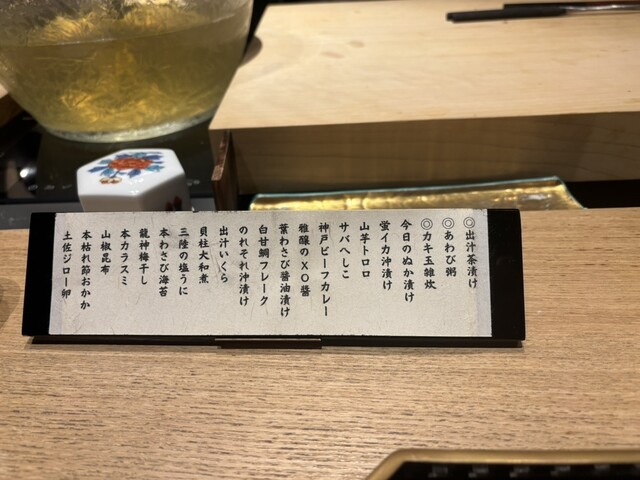 ◎出汁茶漬け
◎あわび粥
◎カキ玉雑炊
今日のぬか漬け
蛍イカ沖漬け
山芋トロロ
サバへしこ
神戸ビーフカレー
雅醸のXO醬
葉わさび醤油漬け
白甘鯛フレーク
のれそれ沖漬け
出汁いくら
貝柱大和煮
三陸の塩うに
本わさび海苔
龍神梅干し
本カラスミ
山椒昆布
本枯れ節おかか
土佐ジロー卵